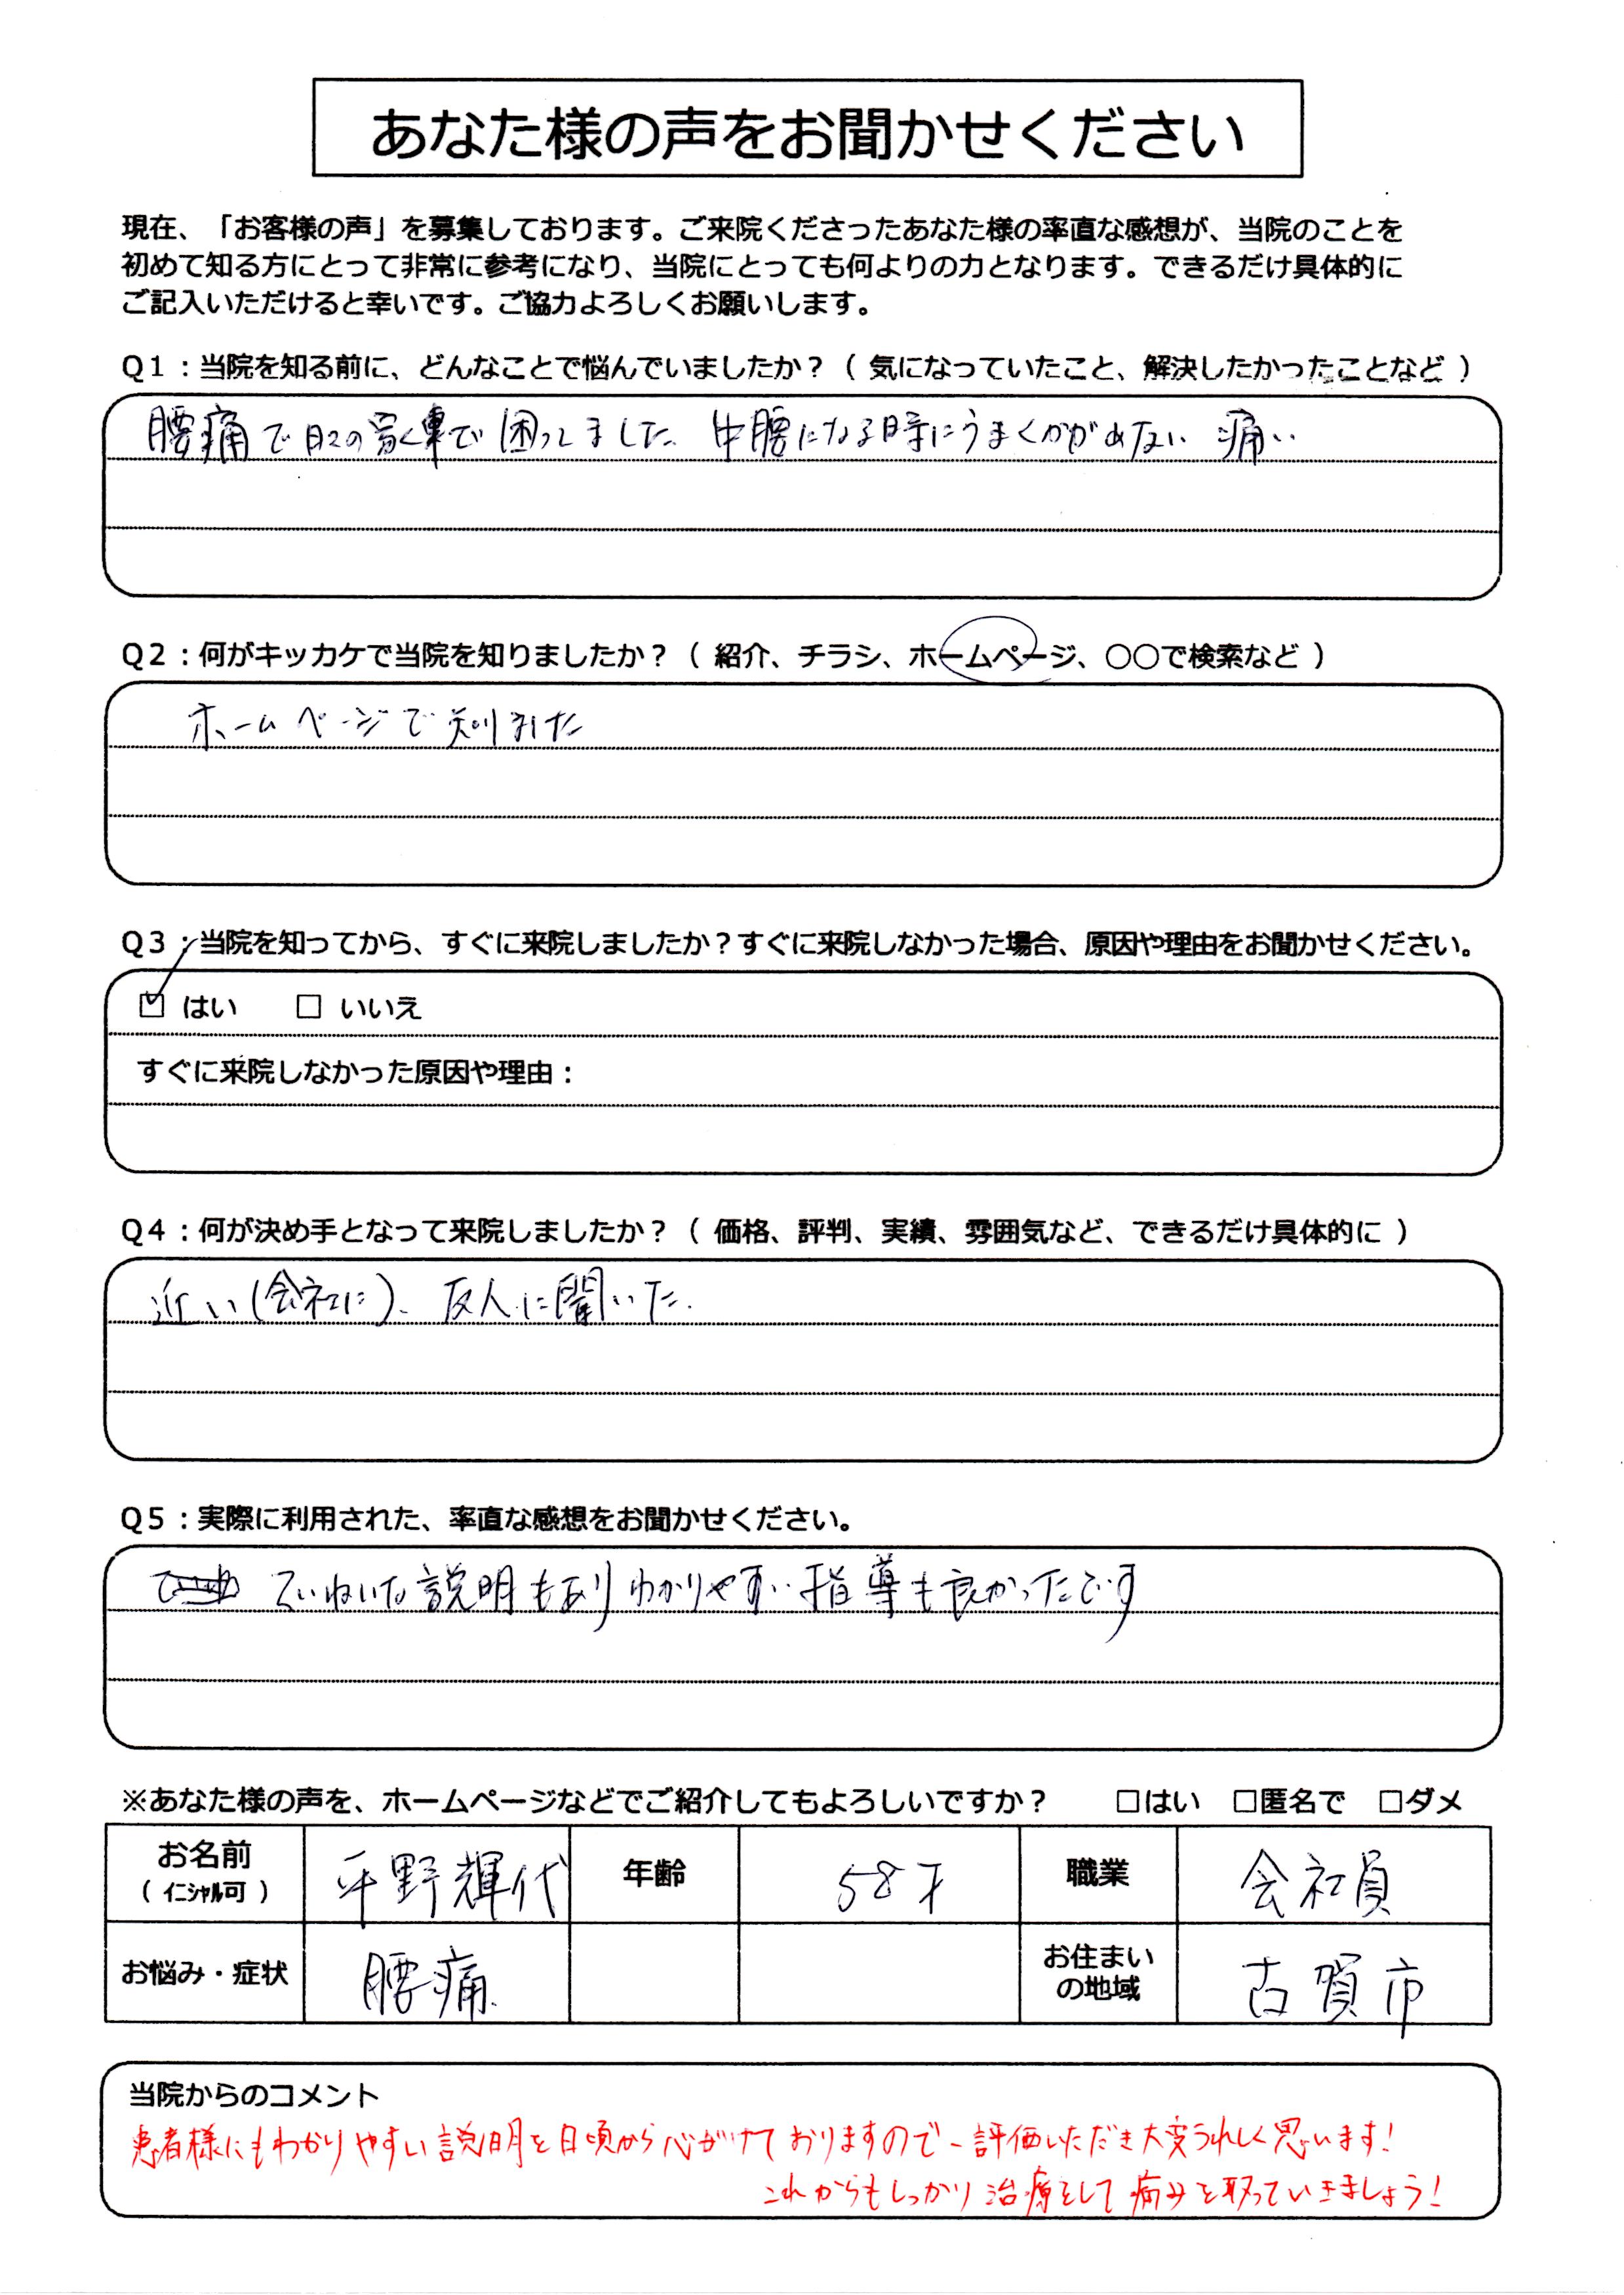 あなた様の声をお聞かせください
現在、「お客様の声」を募集しております。ご来院くださったあなた様の率直な感想が、当院のことを
初めて知る方にとって非常に参考になり、当院にとっても何よりの力となります。できるだけ具体的に
ご記入いただけると幸いです。ご協力よろしくお願いします。
Q1：当院を知る前に、どんなことで悩んでいましたか？（ 気になっていたこと、解決したかったことなど ）
腰痛で日々の家事で困ってました 中腰になる時にうまくかがめない 痛い
Q2：何がキッカケで当院を知りましたか？（ 紹介、チラシ、ホームページ、○○で検索など ）
ホームページで知りました
Q3：当院を知ってから、すぐに来院しましたか？すぐに来院しなかった場合、原因や理由をお聞かせください。
☑ はい □ いいえ
すぐに来院しなかった原因や理由：
Q4：何が決め手となって来院しましたか？（ 価格、評判、実績、雰囲気など、できるだけ具体的に ）
近い(会社に)、友人に聞いた.
Q5：実際に利用された、率直な感想をお聞かせください。
ていねいな説明もありわかりやすい指導も良かったです
※あなた様の声を、ホームページなどでご紹介してもよろしいですか？ □はい □匿名で □ダメ
お名前 平野輝代 年齢 58才 職業 会社員
（ ｲﾆｼｬﾙ可 ）
お悩み・症状 腰痛 お住まいの地域 古賀市
当院からのコメント
患者様にもわかりやすい説明を日頃から心がけておりますので、評価いただき大変うれしく思います！
これからもしっかり治療をして痛みを取っていきましょう！